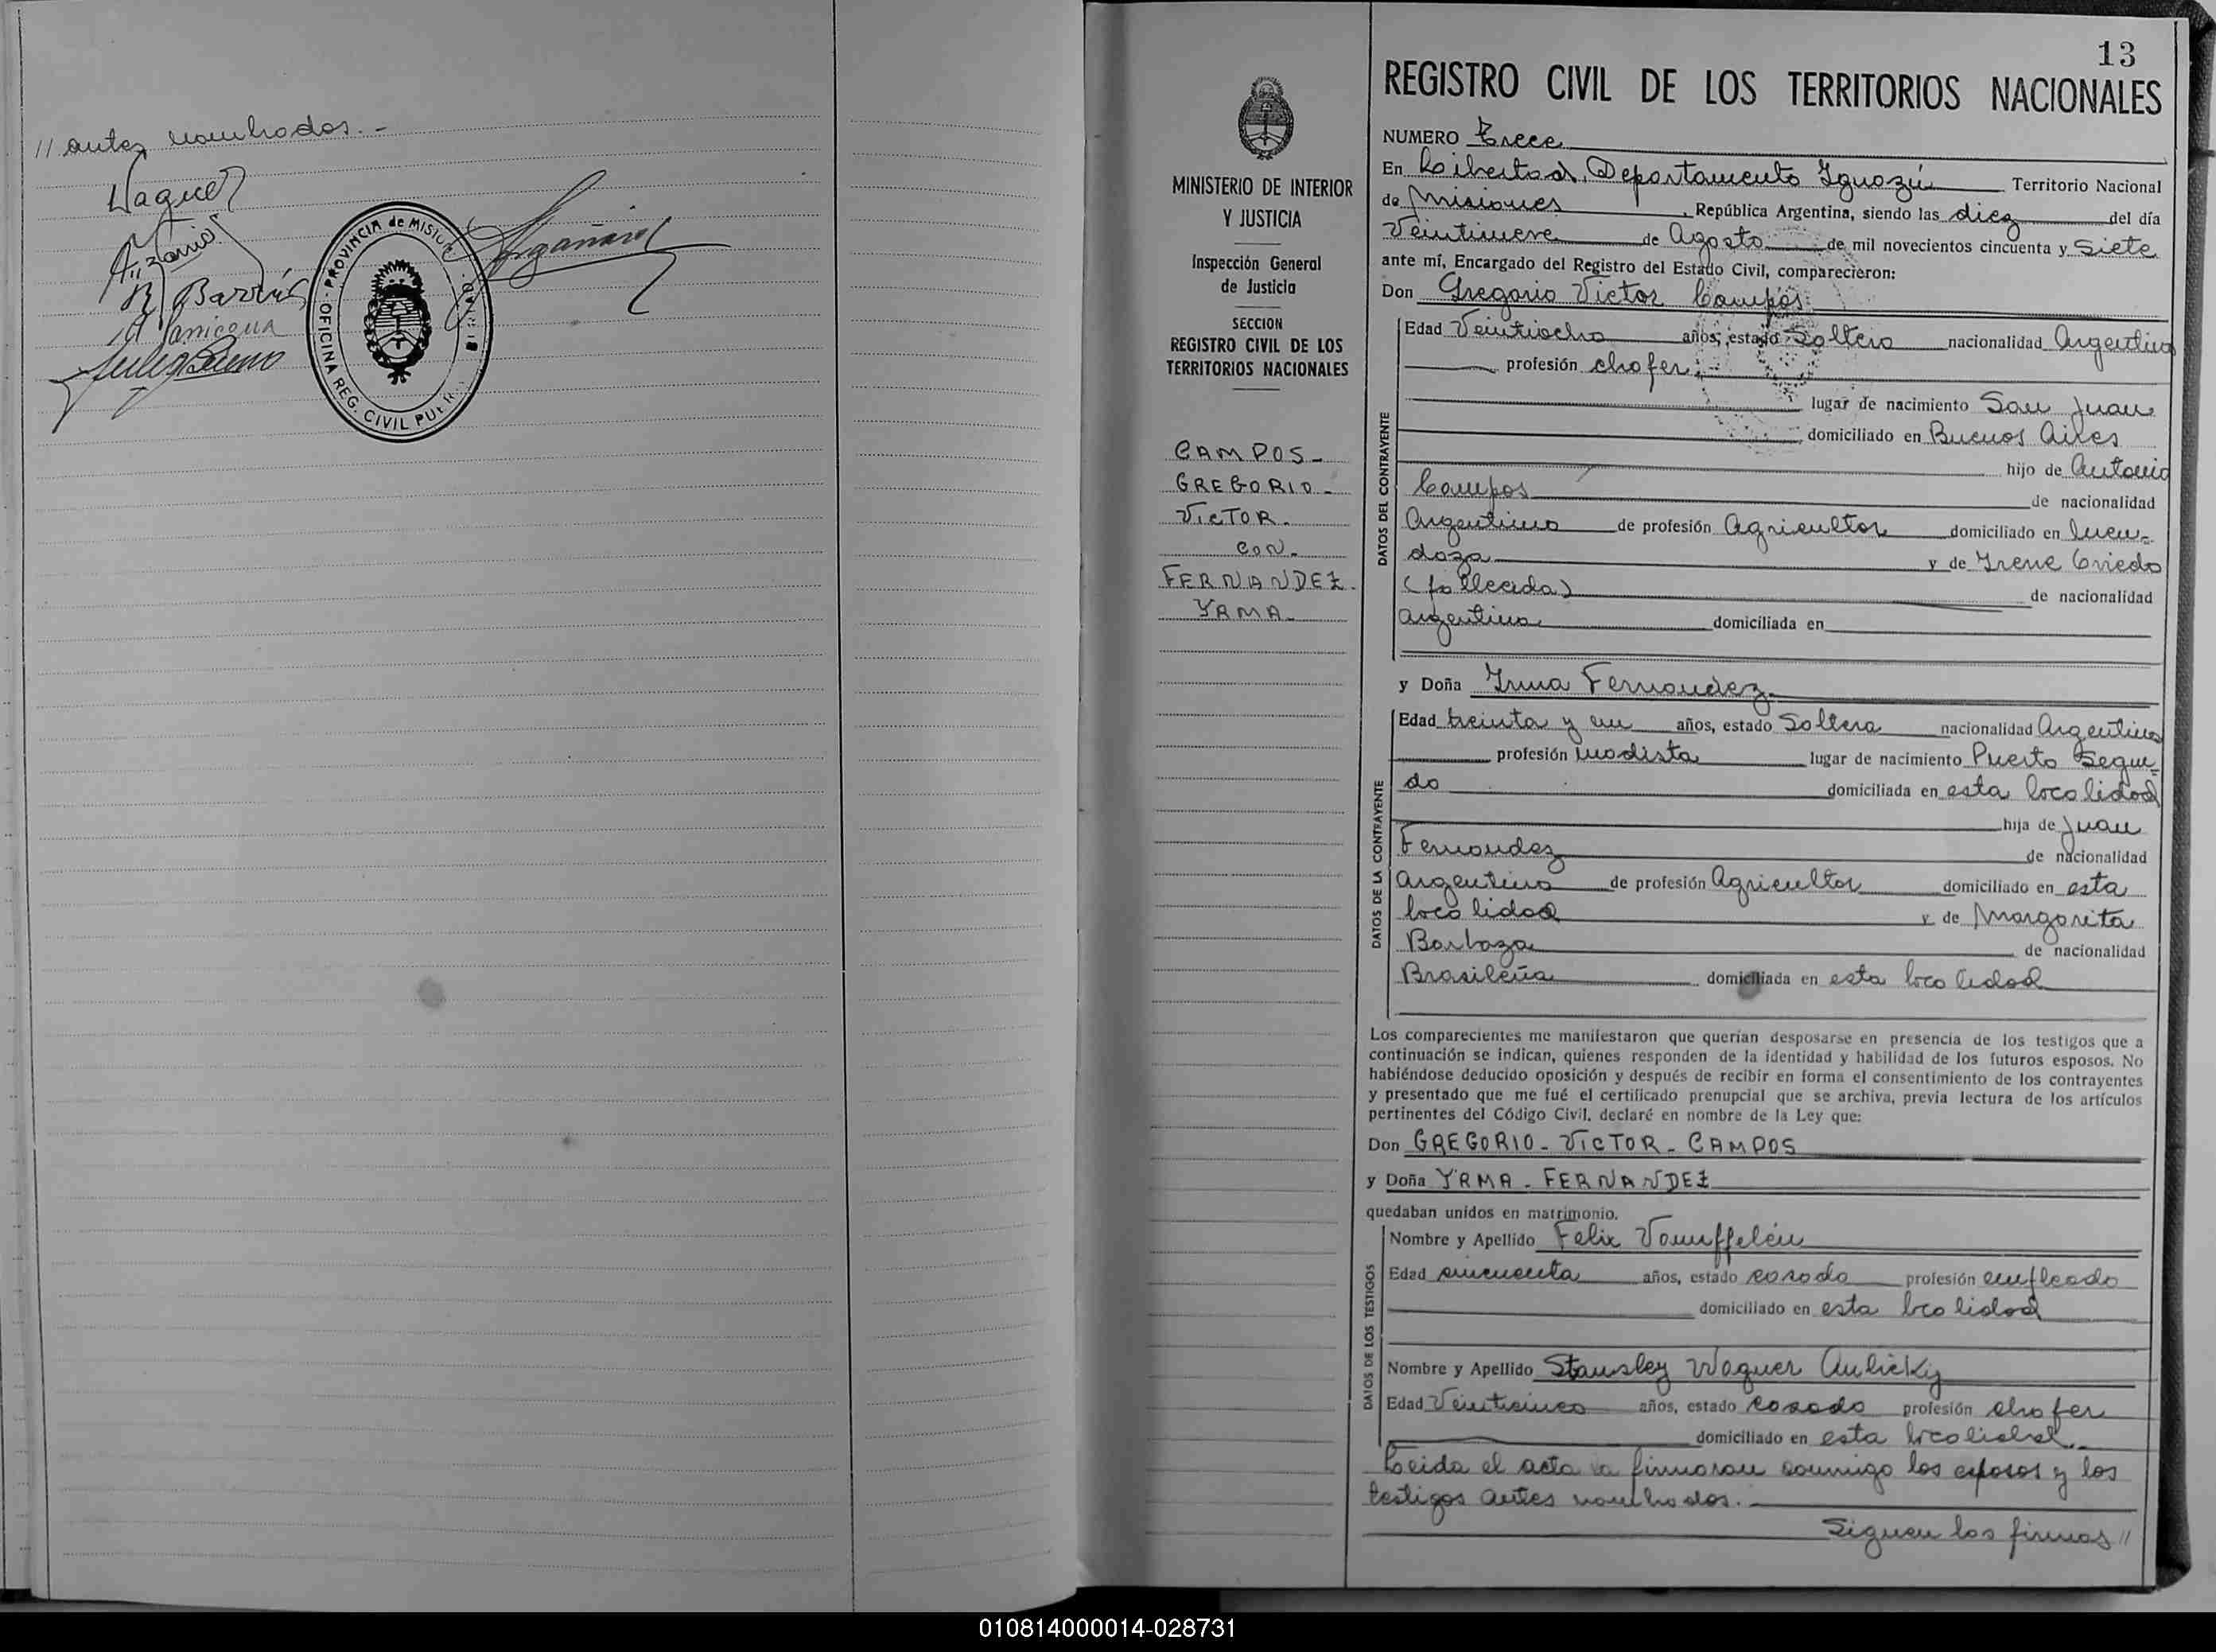 // antes nombrados.-
Wagner
B. Barrios
OFICINA REG. CIVIL PUER
PROVINCIA de MISIO
13
REGISTRO CIVIL DE LOS TERRITORIOS NACIONALES
MINISTERIO DE INTERIOR
Y JUSTICIA
Inspección General
de Justicia
SECCION
REGISTRO CIVIL DE LOS
TERRITORIOS NACIONALES
CAMPOS-
GREGORIO-
VICTOR.
CON-
FERNANDEZ.
YRMA-
NUMERO Trece
En Libertad, Departamento Iguazú Territorio Nacional
de Misiones, República Argentina, siendo las diez del día
Veintinueve de Agosto de mil novecientos cincuenta y Siete
ante mí, Encargado del Registro del Estado Civil, comparecieron:
Don Gregorio Victor Campos
DATOS DEL CONTRAYENTE
Edad Veintiocho años, estado Soltero nacionalidad Argentina
profesión chofer
lugar de nacimiento San Juan
domiciliado en Buenos Aires
hijo de Antonio
Campos de nacionalidad
Argentino de profesión Agricultor domiciliado en Men-
doza y de Yrene Oviedo
(fallecida) de nacionalidad
argentina domiciliada en
y Doña Yrma Fernandez
DATOS DE LA CONTRAYENTE
Edad treinta y un años, estado Soltera nacionalidad Argentina
profesión modista lugar de nacimiento Puerto Segun-
do domiciliada en esta localidad
hija de Juan
Fernandez de nacionalidad
argentino de profesión Agricultor domiciliado en esta
localidad y de Margarita
Barboza de nacionalidad
Brasileña domiciliada en esta localidad
Los comparecientes me manifestaron que querían desposarse en presencia de los testigos que a
continuación se indican, quienes responden de la identidad y habilidad de los futuros esposos. No
habiéndose deducido oposición y después de recibir en forma el consentimiento de los contrayentes
y presentado que me fué el certificado prenupcial que se archiva, previa lectura de los artículos
pertinentes del Código Civil, declaré en nombre de la Ley que:
Don GREGORIO-VICTOR-CAMPOS
y Doña YRMA-FERNANDEZ
quedaban unidos en matrimonio.
DATOS DE LOS TESTIGOS
Nombre y Apellido Felix
Edad cincuenta años, estado casado profesión empleado
domiciliado en esta localidad
Nombre y Apellido Stansley Wagner Aulicky
Edad Veinticinco años, estado casado profesión chofer
domiciliado en esta localidad.
Leida el acta la firmaron conmigo los esposos y los
testigos antes nombrados.
Siguen las firmas//
010814000014-028731